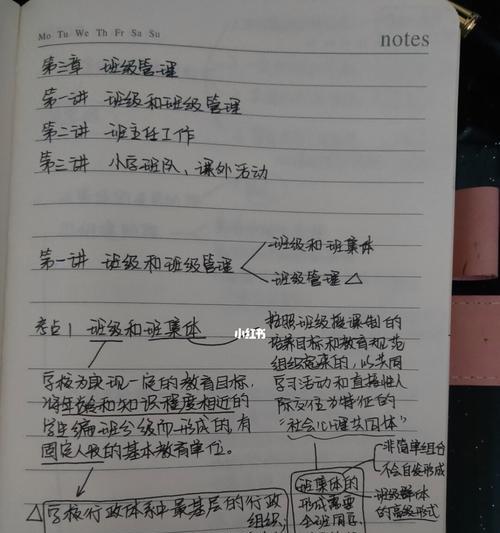 Mo Tu We Th Fr Sa Su
notes
第三章 班级管理
第一讲 班级和班级管理
第二讲 班主任工作
第三讲 小学班队、课外活动
第一讲 班级和班级管理
班级和班集体
班级管理△
考点1 班级和班集体
小红书
学校为实现一定的教育目标,
将年龄和知识程度相近的
学生编班分级而形成的,有
固定人数的基本教育单位。
按照班级授课制的
培养目标和教育规范
组织起来的,以共同
学习活动和直接性人
际交往为特征的
"社会心理共同体"
非简单组合
不会自发形成
班级群体
的高级形式
班集体的
形成需要
全班同学
△学校行政体系中最基层的行政
组织;